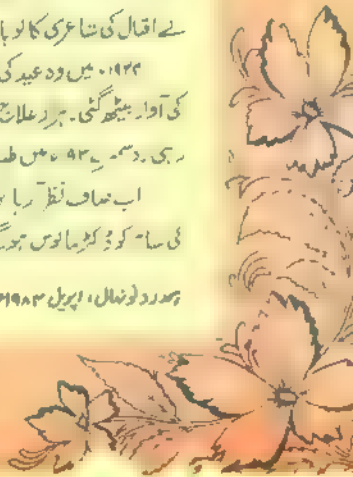 نے اقبال کی شاعری کا لوہا
۱۹۲۴ء میں وہ عید کی
کی آواز بیٹھ گئی۔ ہر علاج
رہی۔ دسمبر میں
اب صاف نظر آ رہا
کی سا کو ڈکٹر مایوس ہو گئے
ہمدرد نونہال، اپریل ۱۹۸۳